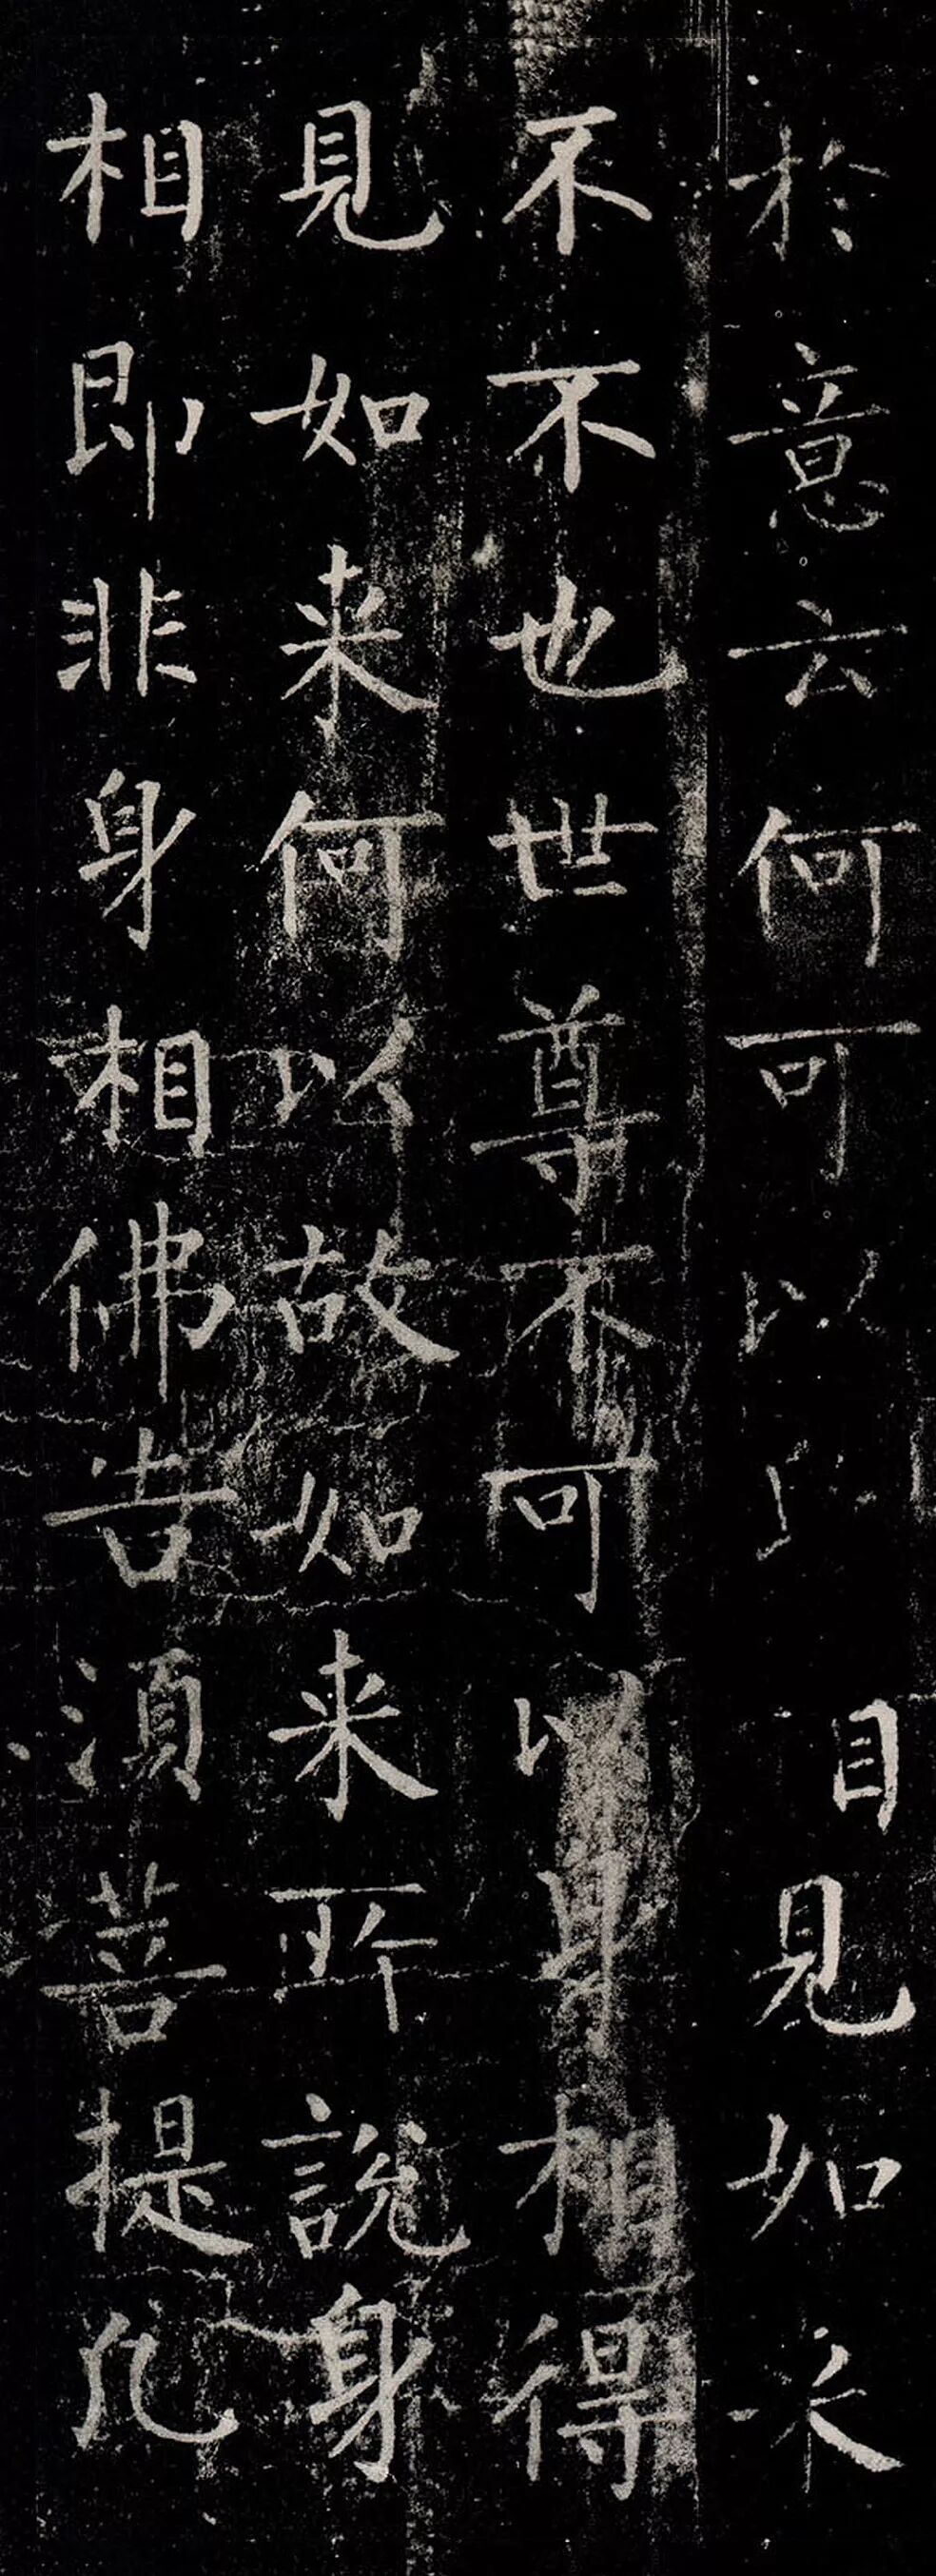 於意云何可以見如来
不不也世尊不可以身相得
見如来何以故如来所說身
相即非身相佛告湏菩提凡